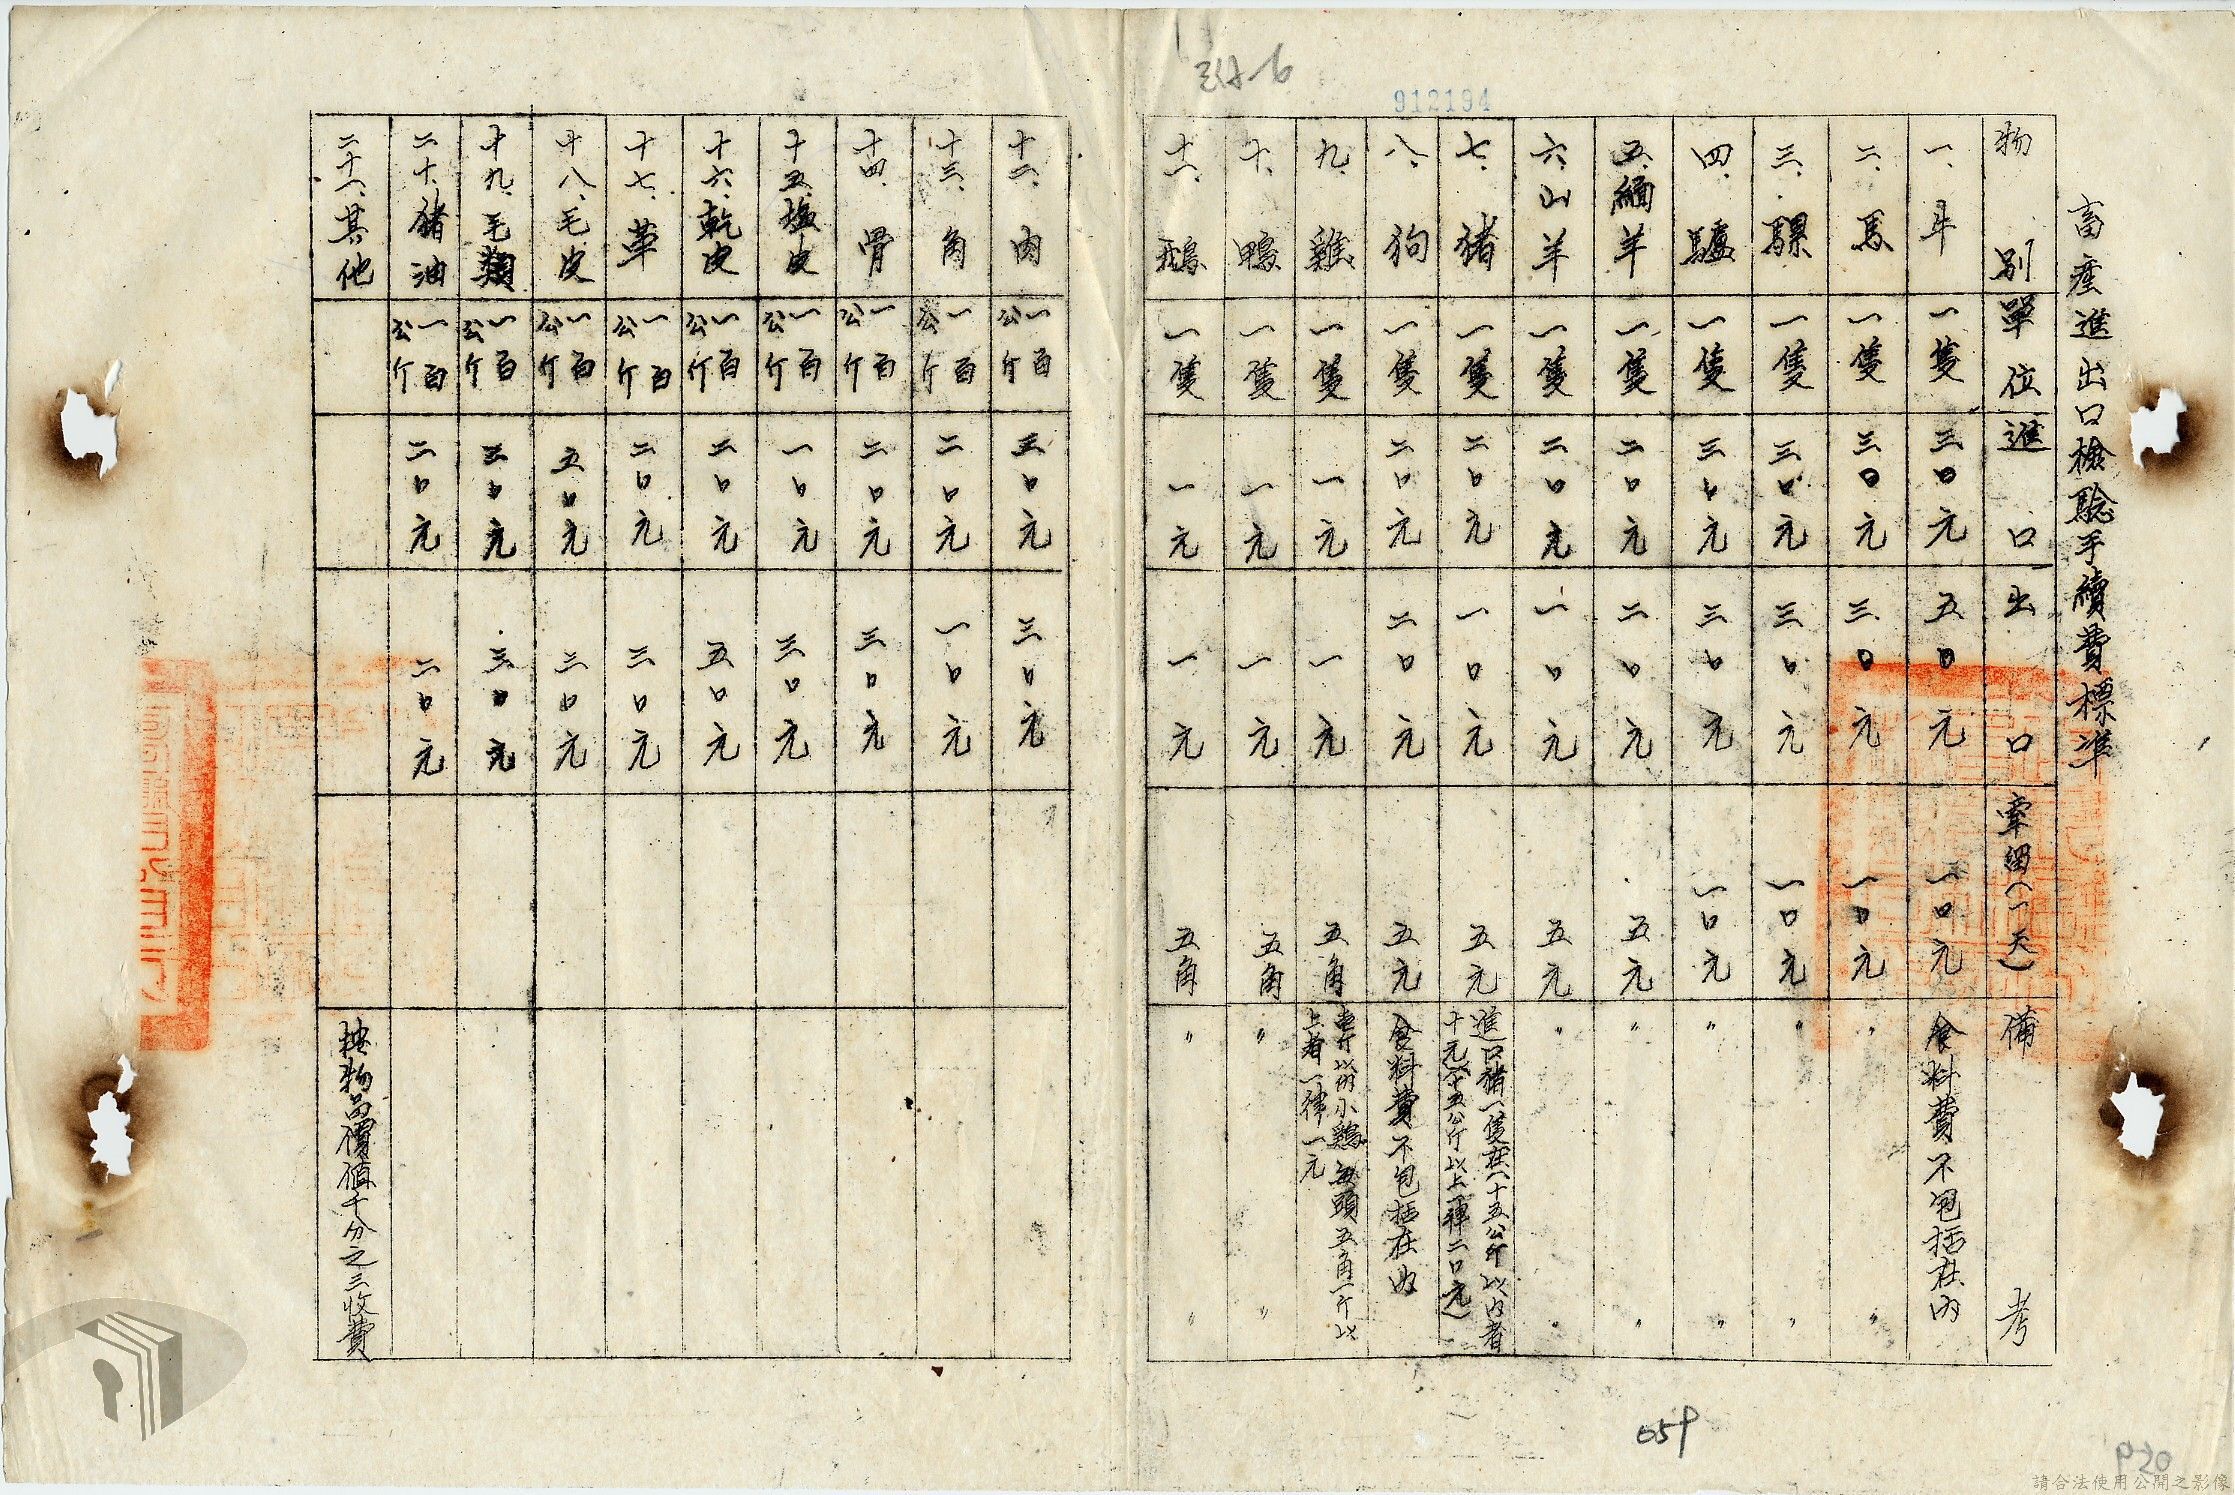 912194
畜産進出口檢驗手續費標準
物別 單位 進口 出口 牽繝(一天) 備考
一、牛 一隻 三〇元 五〇元 一〇元 食料費不包括在內
二、馬 一隻 三〇元 三〇元 一〇元 〃 〃
三、騾 一隻 三〇元 三〇元 一〇元 〃 〃
四、驢 一隻 三〇元 三〇元 一〇元 〃 〃
五、緬羊 一隻 二〇元 二〇元 五元 〃 〃
六、山羊 一隻 二〇元 一〇元 五元 〃 〃
七、猪 一隻 二〇元 一〇元 五元 進口猪一隻在(十五公斤以內者
十元)(十五公斤以上一律二〇元)
八、狗 一隻 二〇元 二〇元 五元 食料費不包括在內
九、雞 一隻 一元 一元 五角 小鷄每頭五角一斤以
上者一律一元
十、鴨 一隻 一元 一元 五角 〃 〃
十一、鵝 一隻 一元 一元 五角 〃 〃
十二、肉 一百公斤 三〇元 三〇元
十三、角 一百公斤 二〇元 一〇元
十四、骨 一百公斤 二〇元 三〇元
十五、塩皮 一百公斤 一〇元 三〇元
十六、乾皮 一百公斤 三〇元 五〇元
十七、革 一百公斤 二〇元 三〇元
十八、毛皮 一百公斤 五〇元 三〇元
十九、毛類 一百公斤 三〇元 三〇元
二十、猪油 一百公斤 二〇元 二〇元
二十一、其他 按物品價值千分之三收費
059
P20
請合法使用公開之影像